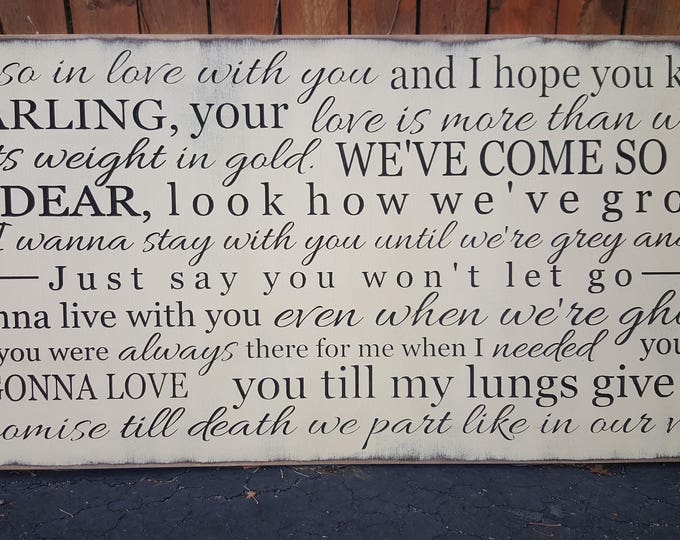 so in love with you and I hope you k
ARLING, your love is more than w
ts weight in gold. WE'VE COME SO
DEAR, look how we've gro
I wanna stay with you until we're grey and
Just say you won't let go
nna live with you even when we're gh
you were always there for me when I needed you
GONNA LOVE you till my lungs give
omise till death we part like in our v